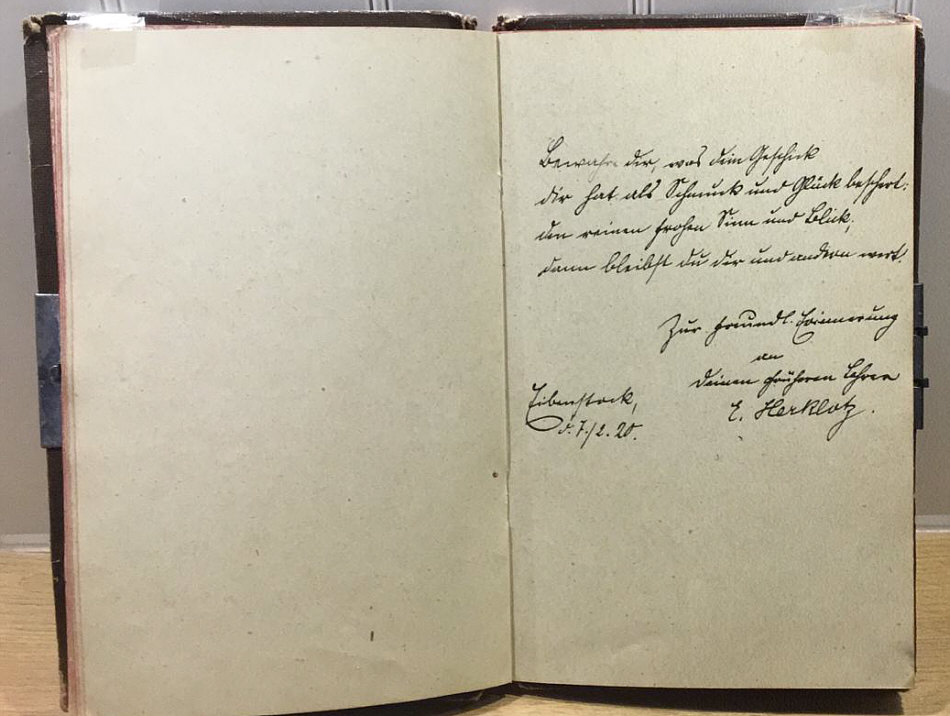 Bewahre dir, was dein Geschick
dir hat als Schmuck und Glück beschert:
den reinen frohen Sinn und Blick,
dann bleibst du dir und andern wert.
Zur freundl. Erinnerung
an
deinen früheren Lehrer
E. Herklotz.
Eibenstock,
d. 7./2. 20.